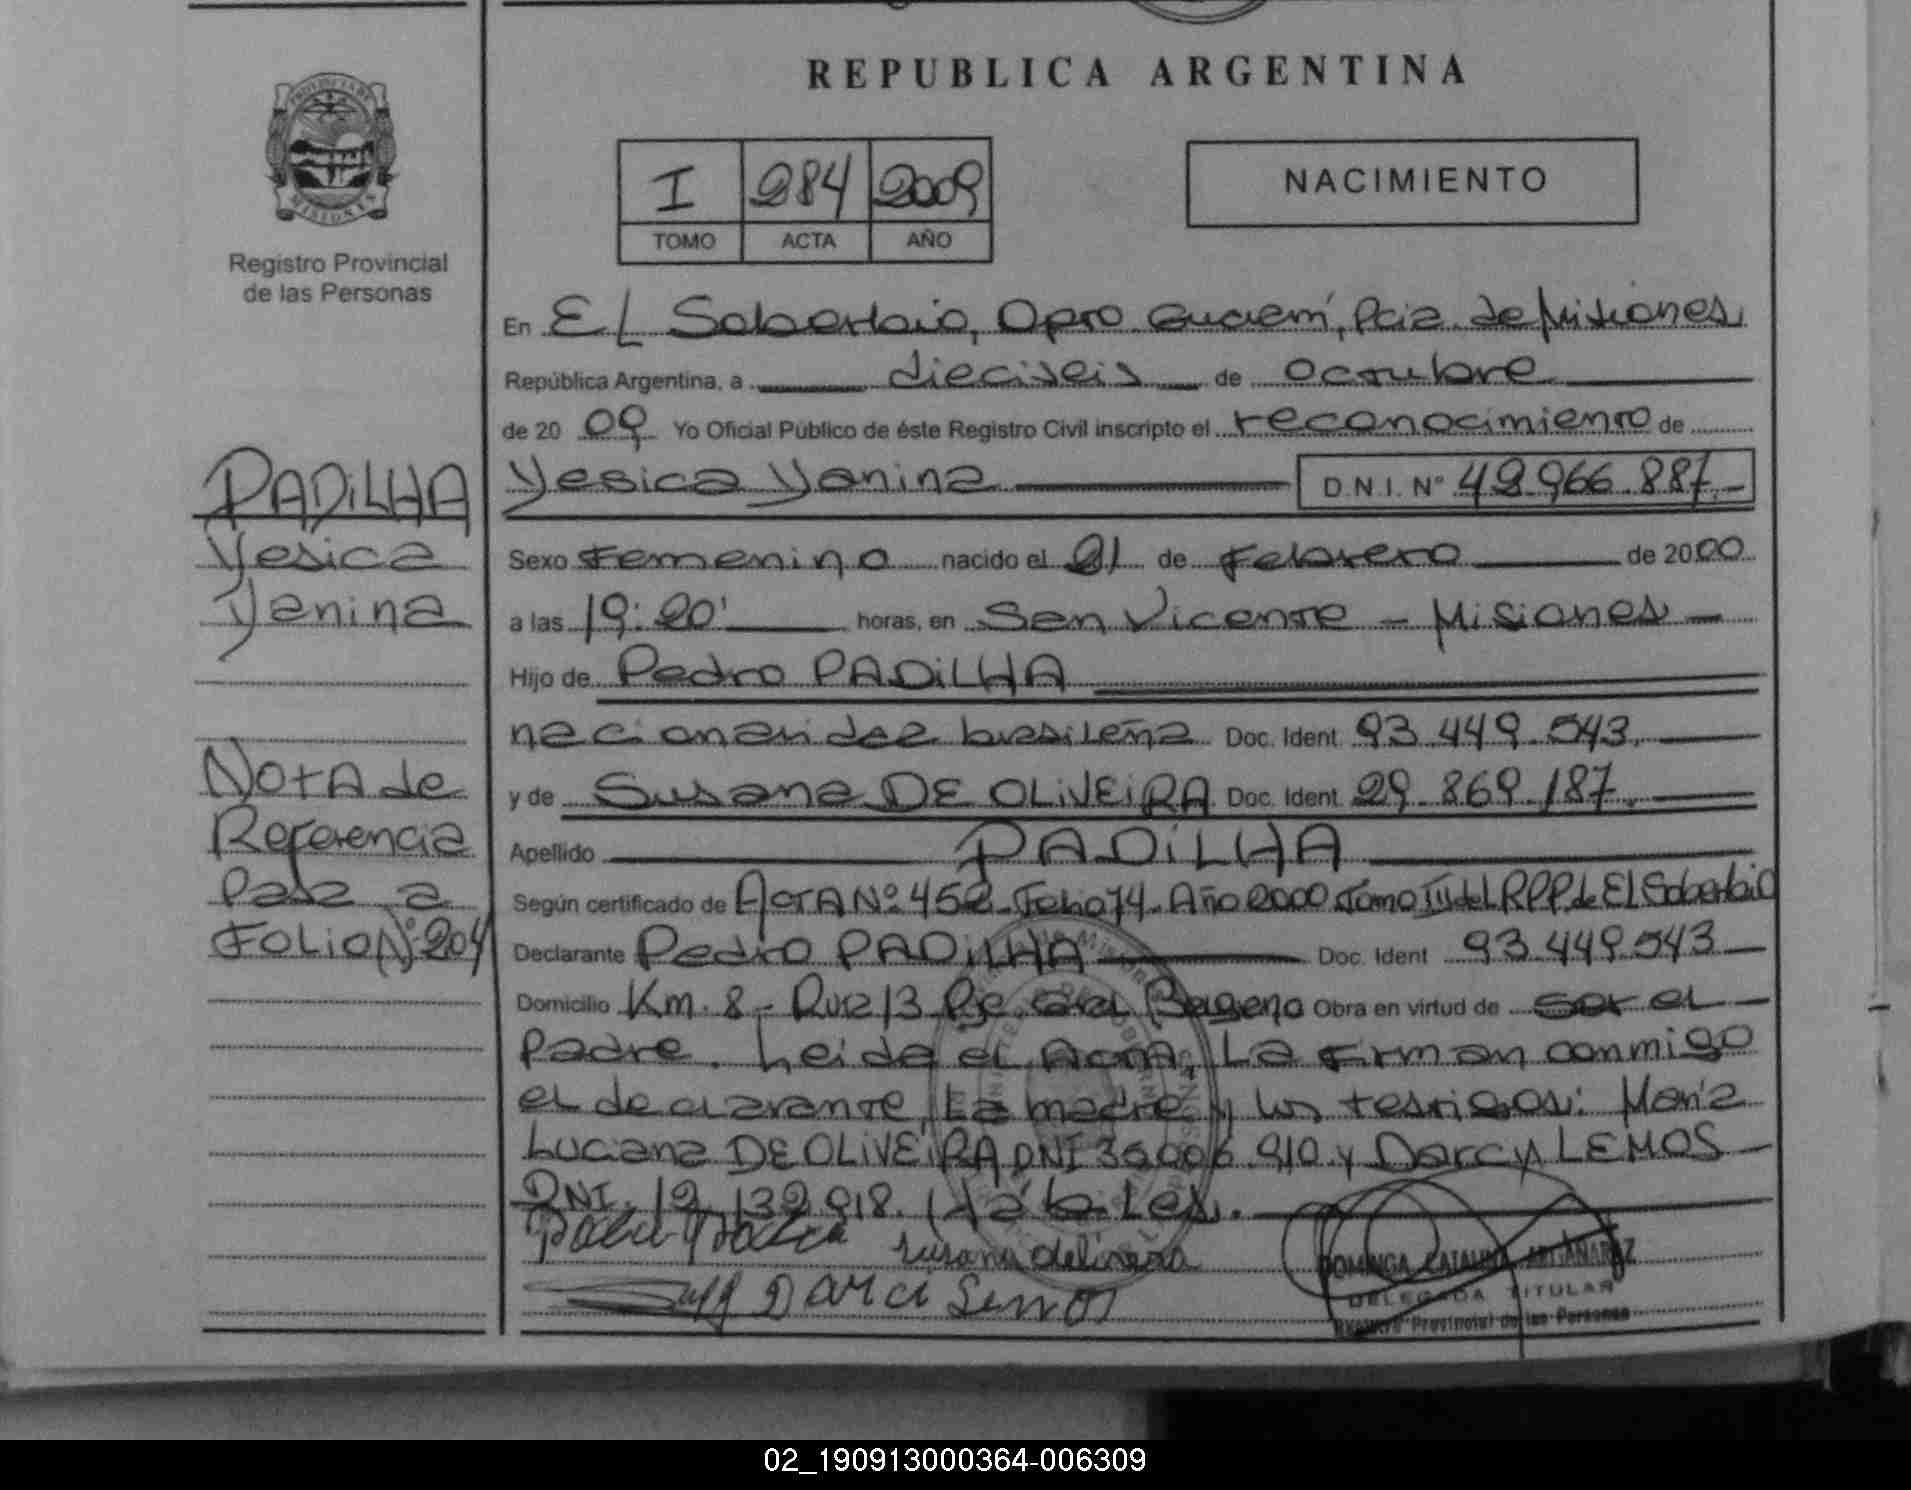 REPUBLICA ARGENTINA
PROVINCIA DE MISIONES
Registro Provincial
de las Personas
I 284 2009
TOMO ACTA AÑO
NACIMIENTO
En El Soberbio, Dpto Guaraní, Pcia. de Misiones,
República Argentina, a dieciseis de octubre
de 20 09 Yo Oficial Público de éste Registro Civil inscripto el reconocimiento de
Yesica Yanina D.N.I. N° 42.966.887.-
Sexo Femenino nacido el 21 de Febrero de 2000
a las 19:20' horas, en San Vicente - Misiones -
Hijo de Pedro PADILHA
nacionalidad brasileña Doc. Ident. 93.449.543.
y de Susana DE OLIVEIRA Doc. Ident. 29.869.187.
Apellido PADILHA
Según certificado de ACTA N° 452 Folio 74 - Año 2000 Tomo III del R.P.P. de El Soberbio
Declarante Pedro PADILHA Doc. Ident 93.449.543
Domicilio Km. 8 - Ruta 13 Pje Obra en virtud de ser el
Padre. Leida el Acta, La Firman conmigo
el declarante, La madre y los testigos: María
Luciana DE OLIVEIRA DNI 910 y Darcy LEMOS
DNI. Hábiles.
Susana deliveira
Darci Lemos
DOMINGA CATALINA ARGAÑARAZ
DELEGADA TITULAR
Registro Provincial de las Personas
PADILHA
Yesica
Yanina
NOTA de
Referencia
Pasa a
FOLIO N° 204
02_190913000364-006309